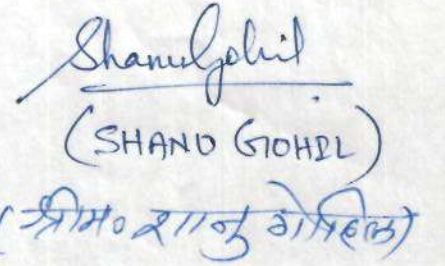 Shanu Gohil
(SHANU GOHIL)
(श्रीम० शानु गोहिल)